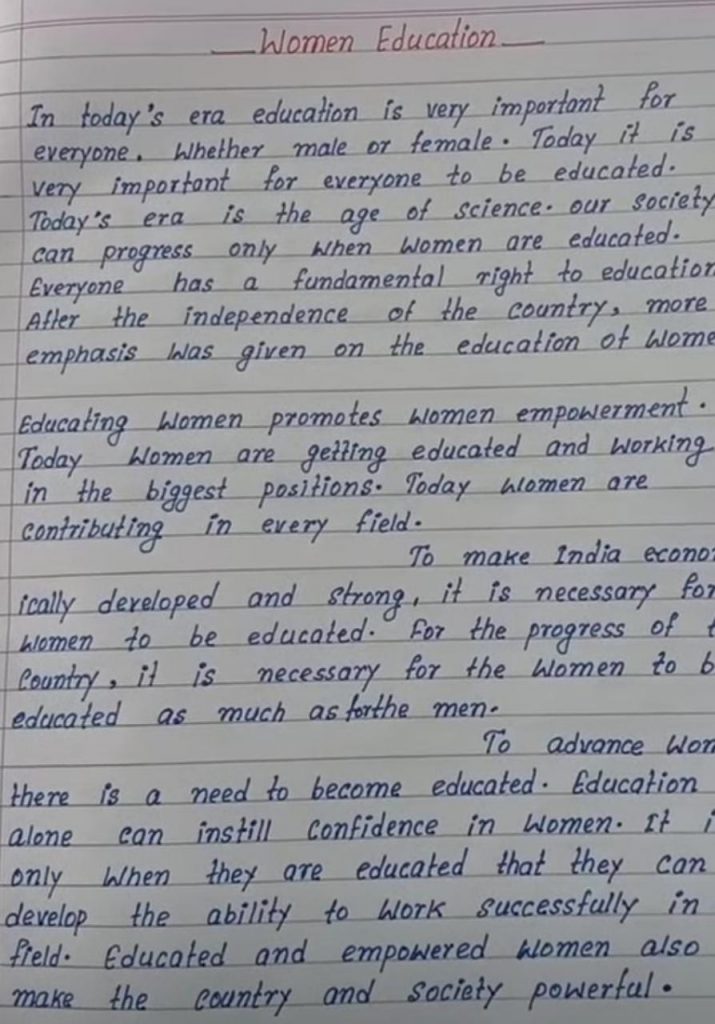 Women Education
In today's era education is very important for
everyone. Whether male or female. Today it is
very important for everyone to be educated.
Today's era is the age of science. our society
can progress only when women are educated.
Everyone has a fundamental right to education
After the independence of the country, more
emphasis was given on the education of Wome
Educating Women promotes women empowerment.
Today Women are getting educated and working
in the biggest positions. Today women are
contributing in every field.
To make India econo
ically developed and strong, it is necessary for
women to be educated. For the progress of t
Country, it is necessary for the Women to b
educated as much as forthe men.
To advance Wom
there is a need to become educated. Education
alone can instill Confidence in Women. It i
only when they are educated that they can
develop the ability to work successfully in
field. Educated and empowered women also
make the country and society powerful.